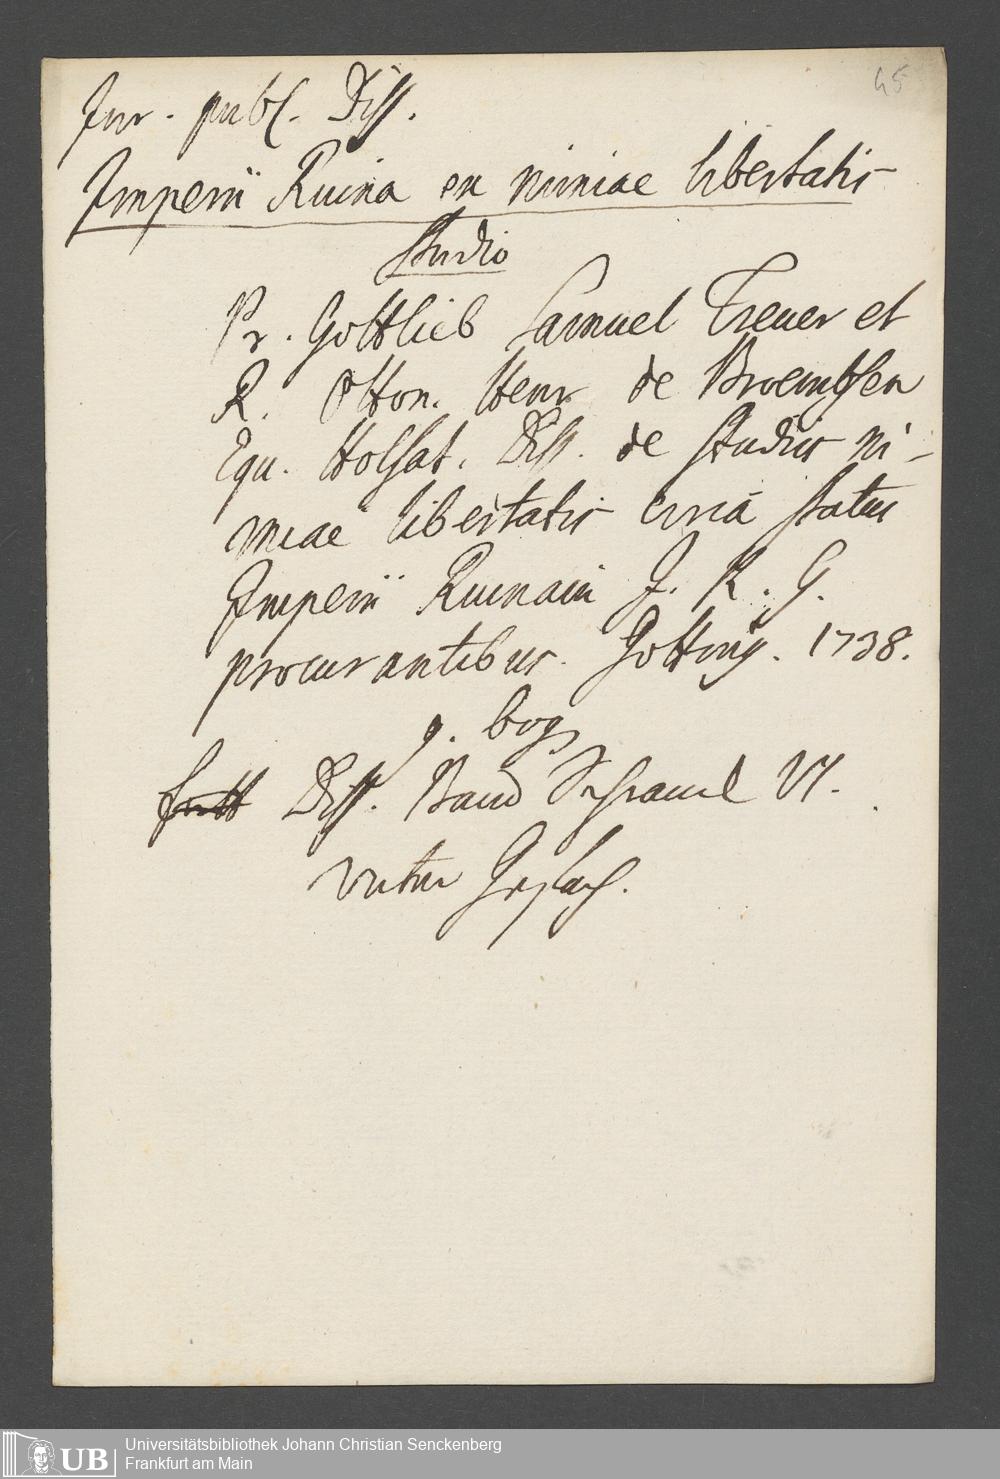 45
Jur. publ. Diss.
Imperii Ruina ex nimiae libertatis
studio
Pr. Gottlieb Samuel Treuer et
R. Otton. Henr. de Broembsen
Equ. Holsat. Diss. de studiis ni-
miae libertatis circa statum
Imperii Ruinam I. R. G.
procurantibus. Gotting. 1738.
9. bog.
Diss. Band VI.
unter
UB Universitätsbibliothek Johann Christian Senckenberg
Frankfurt am Main